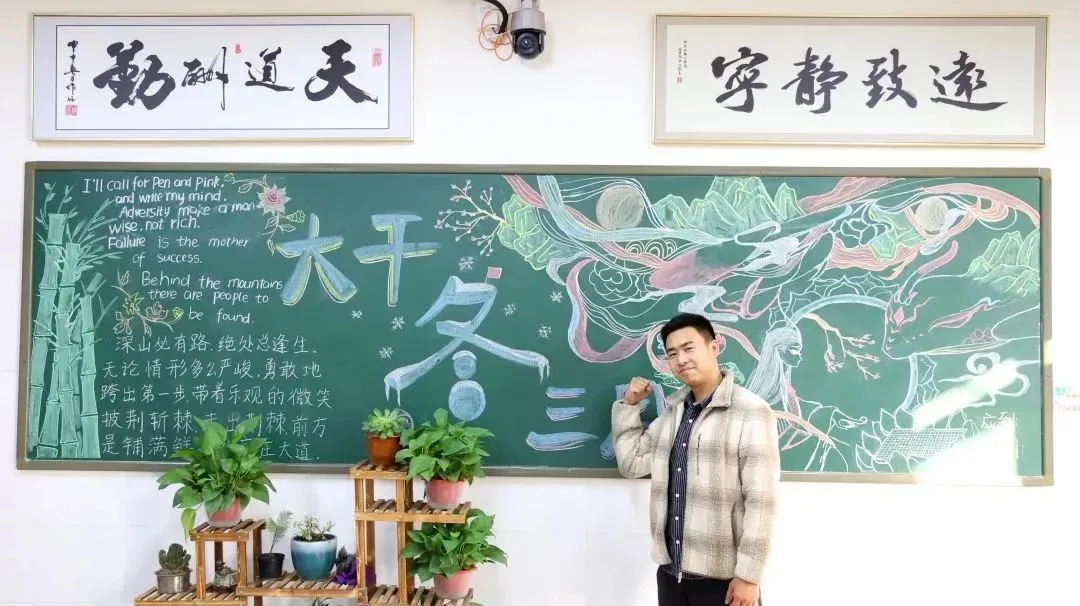 天道酬勤
寧静致遠
I'll call for Pen and Pink,
and write my mind.
Adversity make a man
wise, not rich.
Failure is the mother
of success.
Behind the mountains
there are people to
be found.
深山必有路,绝处总逢生.
无论情形多么严峻,勇敢地
跨出第一步,带着乐观的微笑
披荆斩棘 走出荆棘,前方
是铺满鲜 庄大道.
大千
冬
三
应到